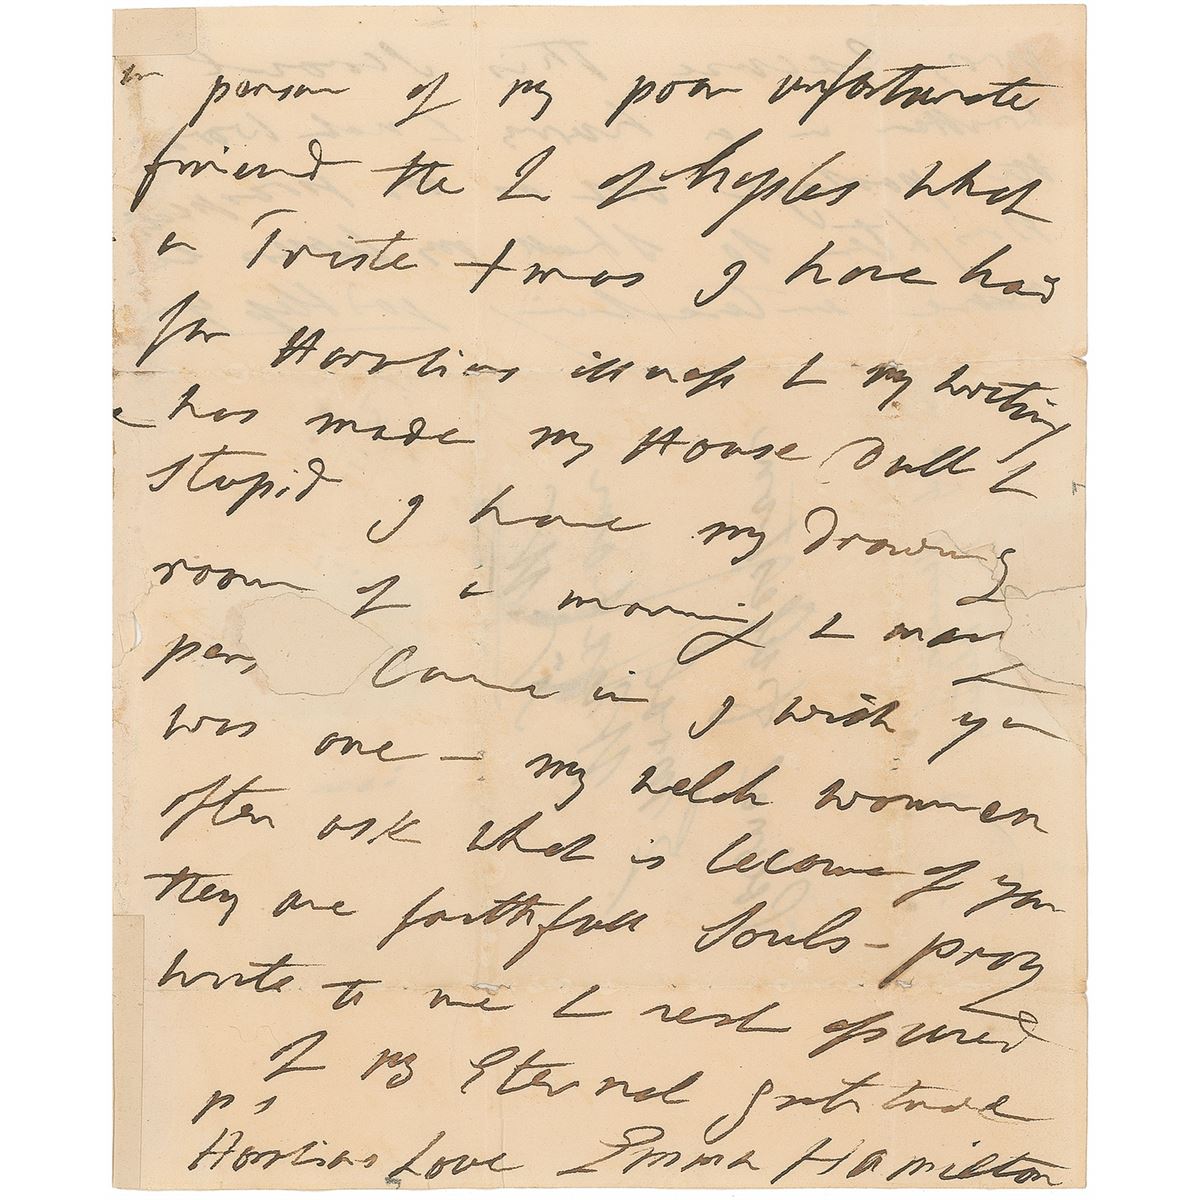 in person of my poor unfortunate
friend the Q of Naples what
a Triste Xmas I have had
for Horatias illness & my writing
has made my House Dull &
Stupid I have my Drawing
room of a morning & many
pers Came in I wish you
was one – my welch women
often ask what is become of you
they are faithfull Souls – pray
write to me & rest assured
of my Eternal gratitude
ps
Horatias Love Emma Hamilton